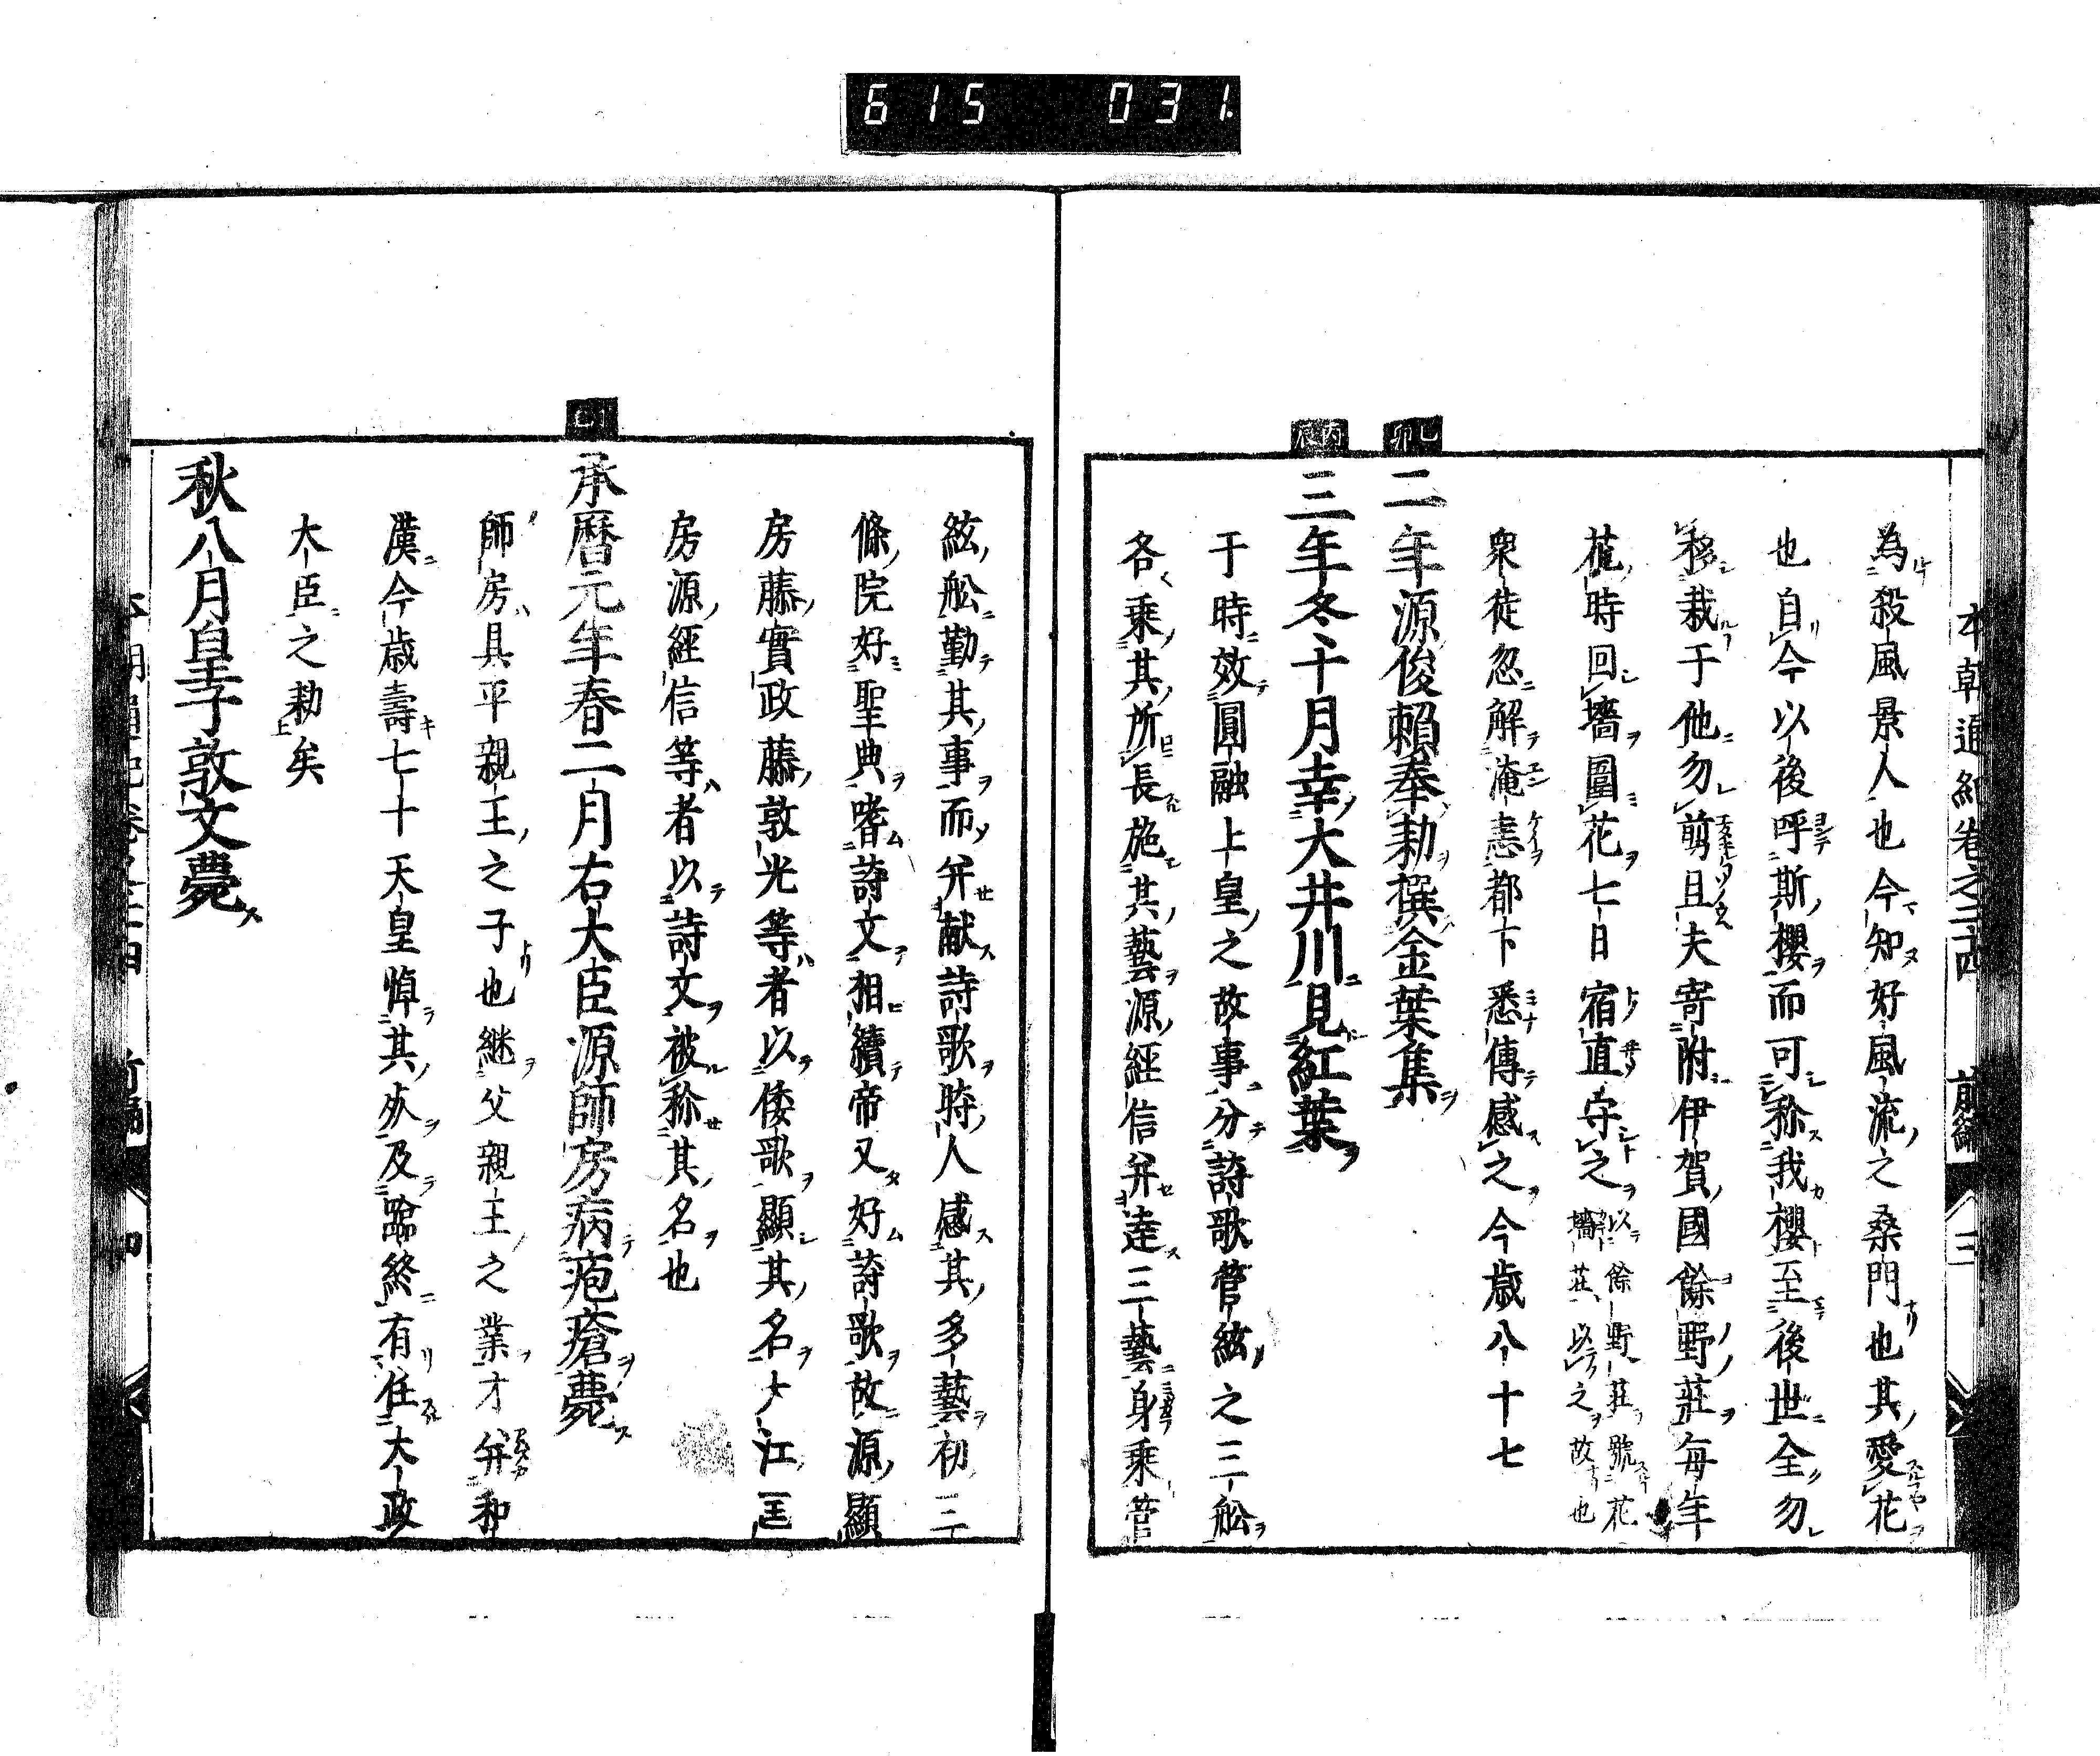 615 031
本朝通紀卷之二十四 前編 三
為殺風景人也今知好風流之桑門也其愛花
也自今以後呼斯櫻而可称我櫻至後世全勿
移栽于他勿剪且夫寄附伊賀國餘野莊每年
花時回墻圍花七日宿直守之以餘野莊號花
墻莊以之故也
衆徒忽解淹恚都下悉傳感之今歳八十七
乙卯
二年源俊賴奉勅撰金葉集
丙辰
三年冬十月幸大井川見紅葉
于時效圓融上皇之故事分詩歌管絃之三舩
各乘其所長施其藝源經信并達三藝身乘管
絃舩勤其事而并献詩歌時人感其多藝初三
條院好聖典嗜詩文相續帝又好詩歌故源顯
房藤實政藤敦光等者以倭歌顯其名大江匡
房源經信等者以詩文被称其名也
丁巳
承曆元年春二月右大臣源師房病疱瘡薨
師房具平親王之子也継父親王之業才并和
漢今歳壽七十天皇悼其疾及臨終有任大政
大臣之勅矣
秋八月皇子敦文薨